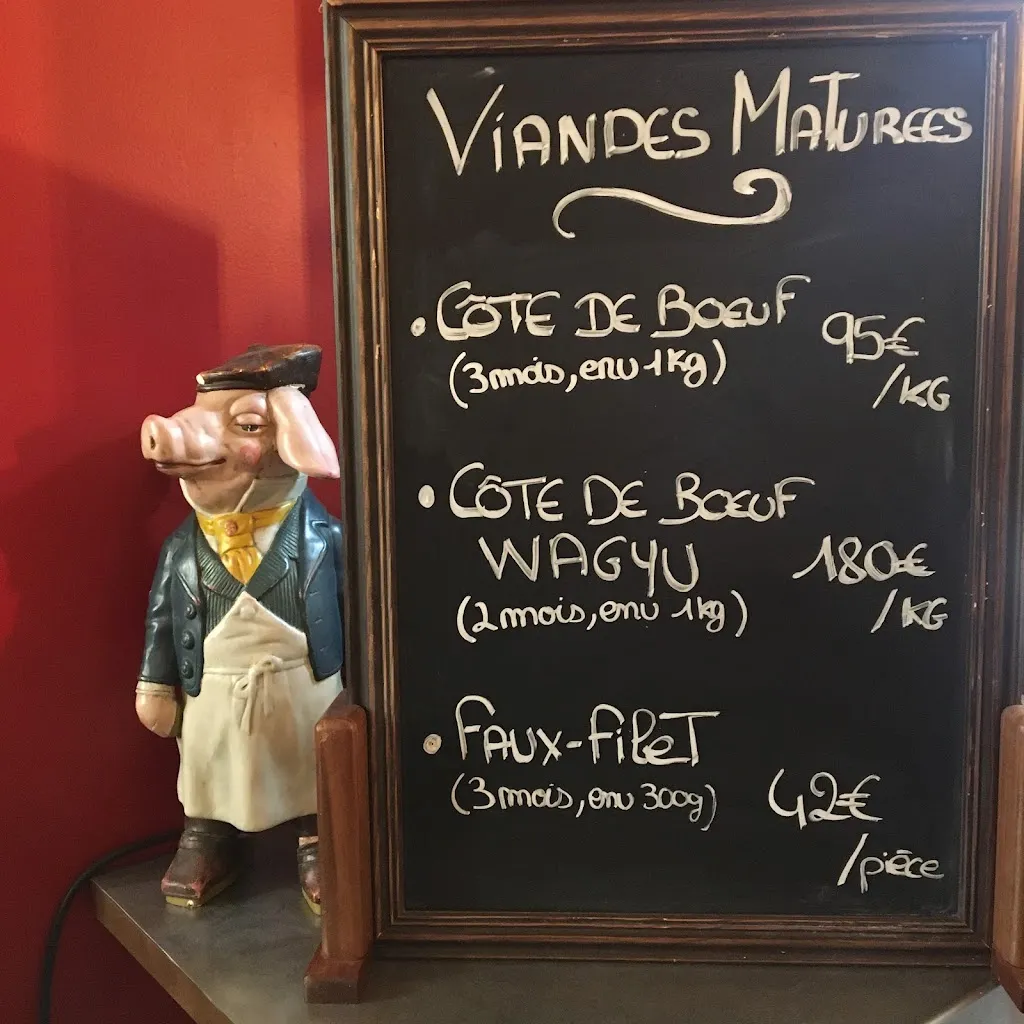 ViANDES MATUREES
• CÔTE DE BOEUF 95€
(3 mois, env 1kg) /KG
• CÔTE DE BOEUF
WAGYU 180€
(2 mois, env 1kg) /KG
• FAUX-FiLET
(3 mois, env 300g) 42€
/pièce